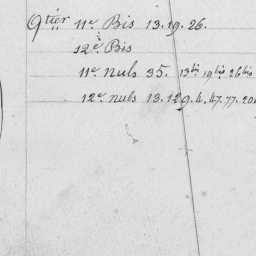 Qtier 11e Bis 13. 19. 26.
12e Bis
11e nuls 35. 13bis 19bis 26bis
12e nuls 13. 129. 4. 47. 77. 20